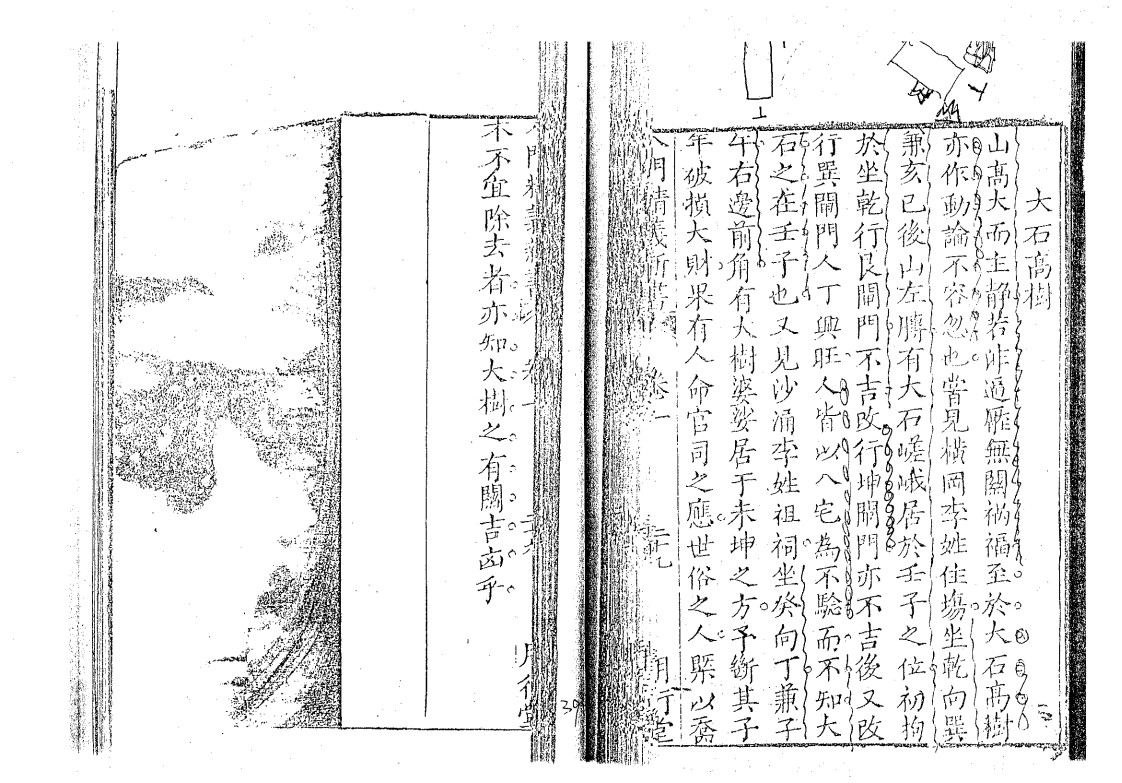 大石高樹
山高大而主靜若非逼壓無關禍福至於大石高樹
亦作動論不容忽也嘗見橫岡李姓住塲坐乾向巽
兼亥已後山左膊有大石嵯峨居於壬子之位初拘
於坐乾行艮開門不吉改行坤開門亦不吉後又改
行巽開門人丁興旺人皆以八宅為不驗而不知大
石之在壬子也又見沙涌李姓祖祠坐癸向丁兼子
午右邊前角有大樹婆娑居于未坤之方予斷其子
年破損大財果有人命官司之應世俗之人槩以喬
卷一
二十九
明行堂
木不宜除去者亦知大樹之有關吉凶乎
39